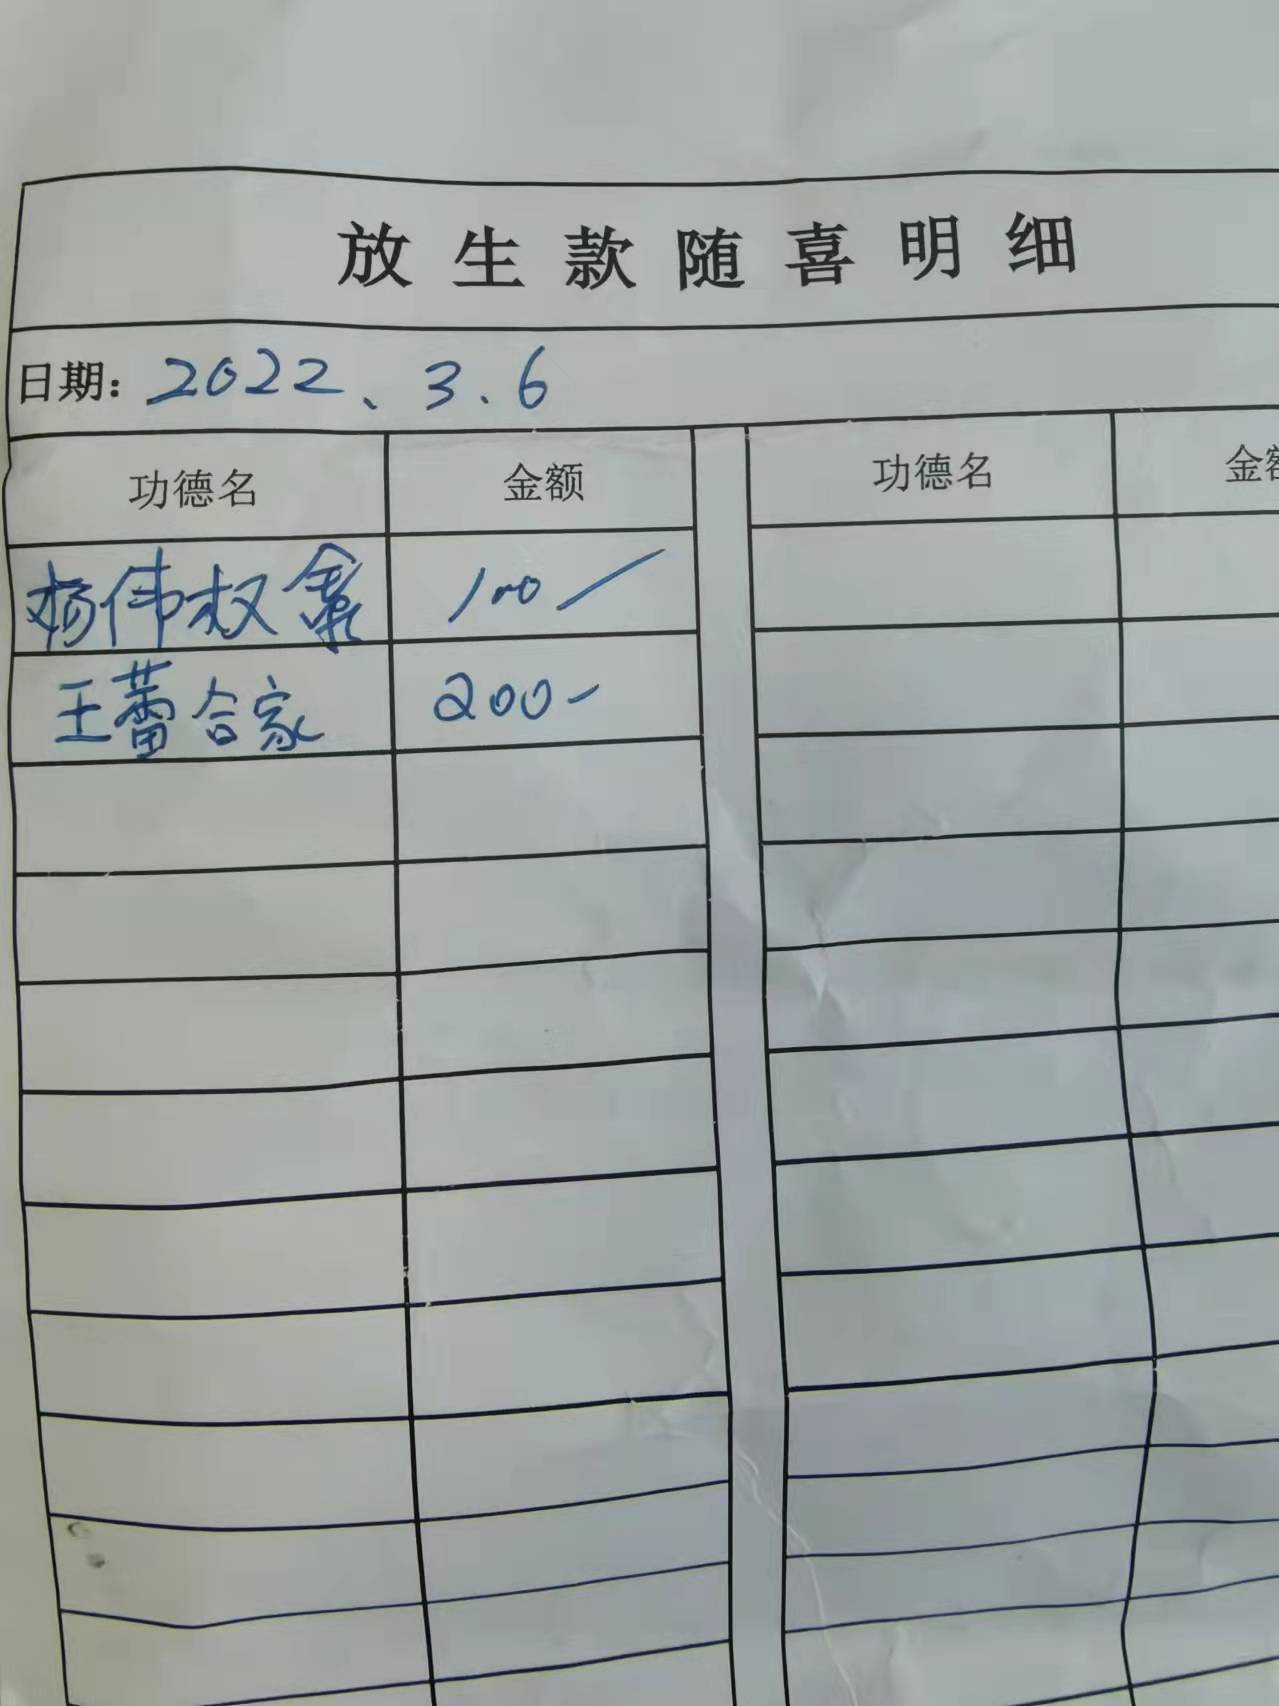 放生款随喜明细
日期: 2022、3.6
功德名 金额 功德名 金额
杨伟权 100
王蕾合家 200-